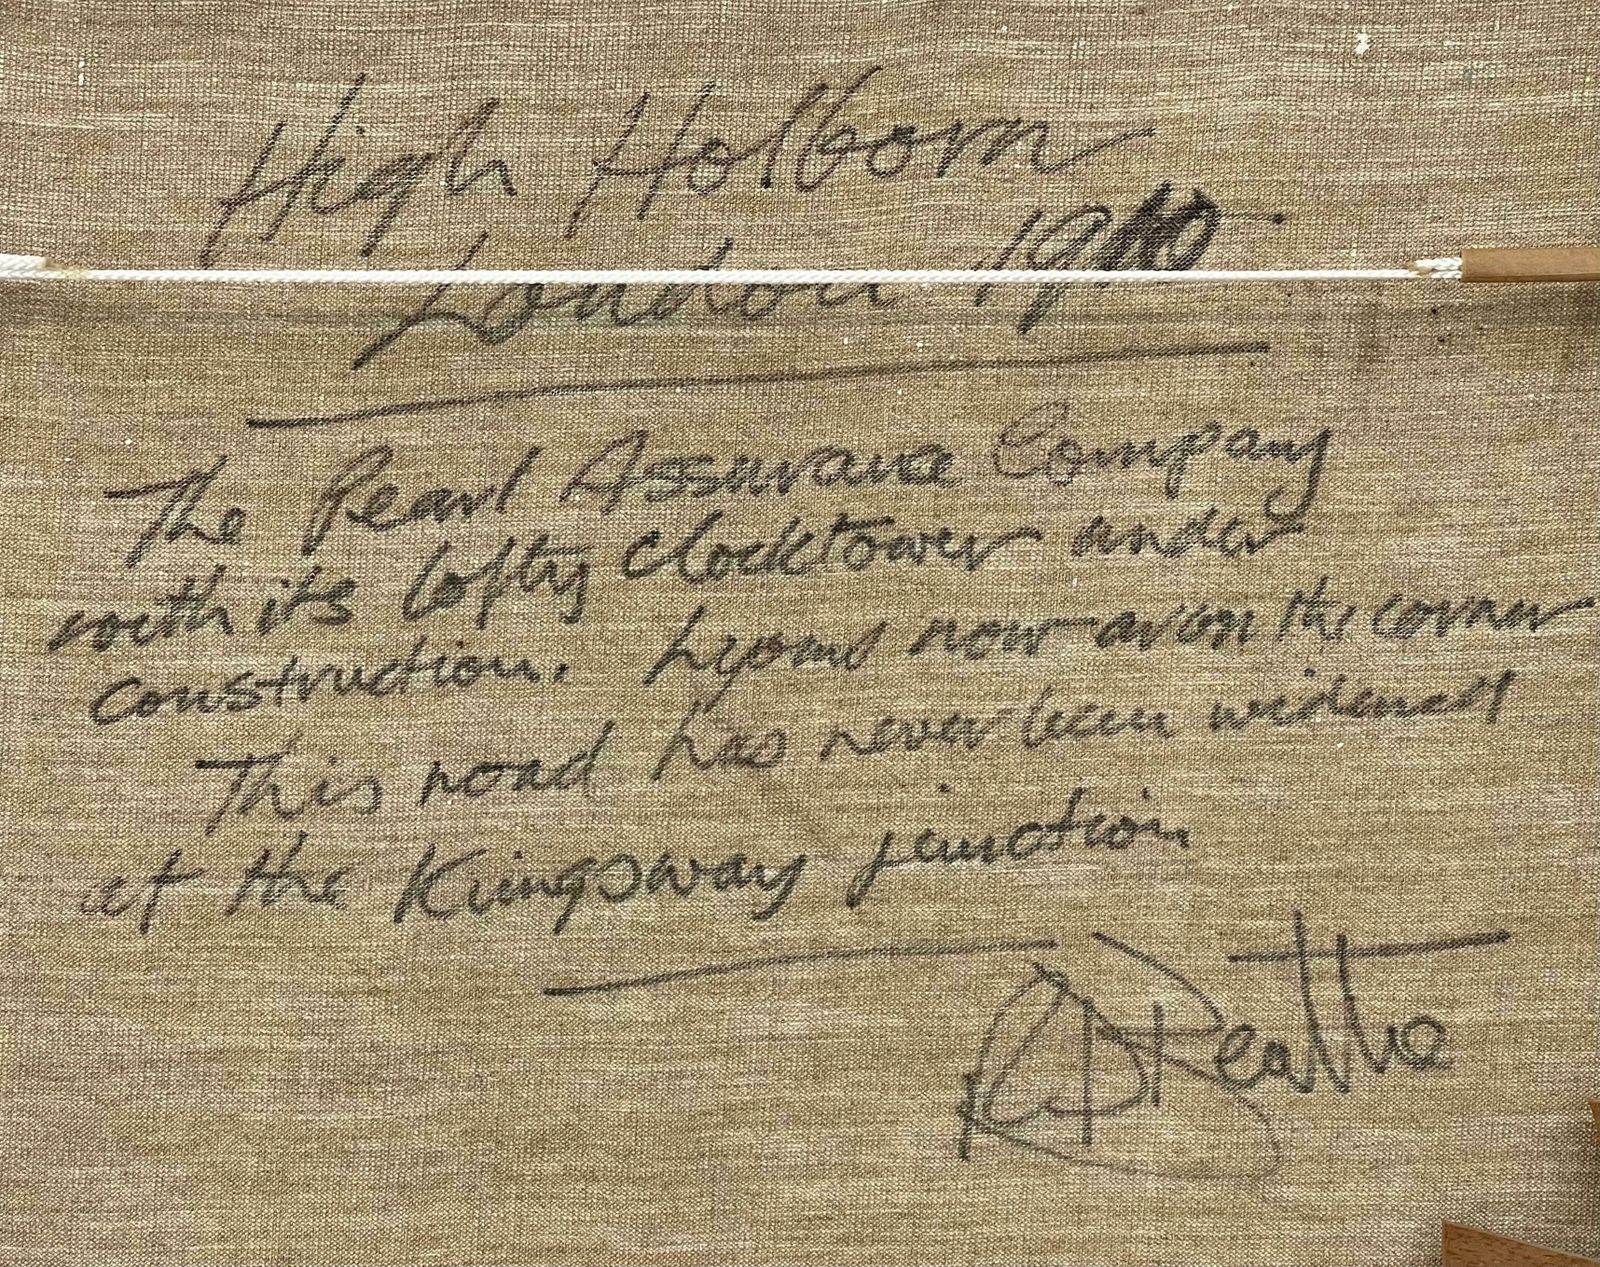 High Holborn
London 1910
The Pearl Assurance Company
with its lofty clocktower under
construction. Lyons now on the corner
This road has never been widened
at the Kingsway junction
Beattie